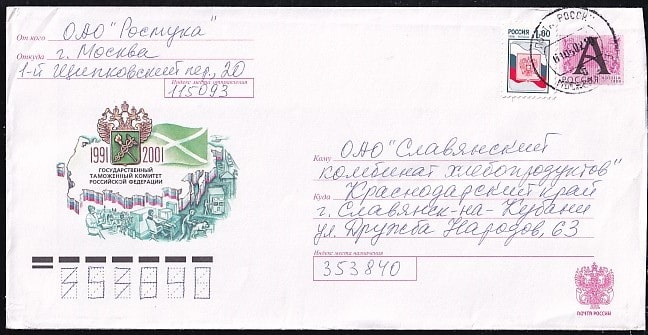 От кого ОАО "Росмука"
Откуда г. Москва
1-й Щипковский пер, 20
Индекс места отправления
115093
РОССИЯ 1.00
А
РОССИЯ
1991 2001
ГОСУДАРСТВЕННЫЙ
ТАМОЖЕННЫЙ КОМИТЕТ
РОССИЙСКОЙ ФЕДЕРАЦИИ
Кому ОАО "Славянский
комбинат хлебопродуктов"
Куда Краснодарский край
г. Славянск-на-Кубани
ул. Дружба Народов, 63
Индекс места назначения
353840
353840
ПОЧТА РОССИИ